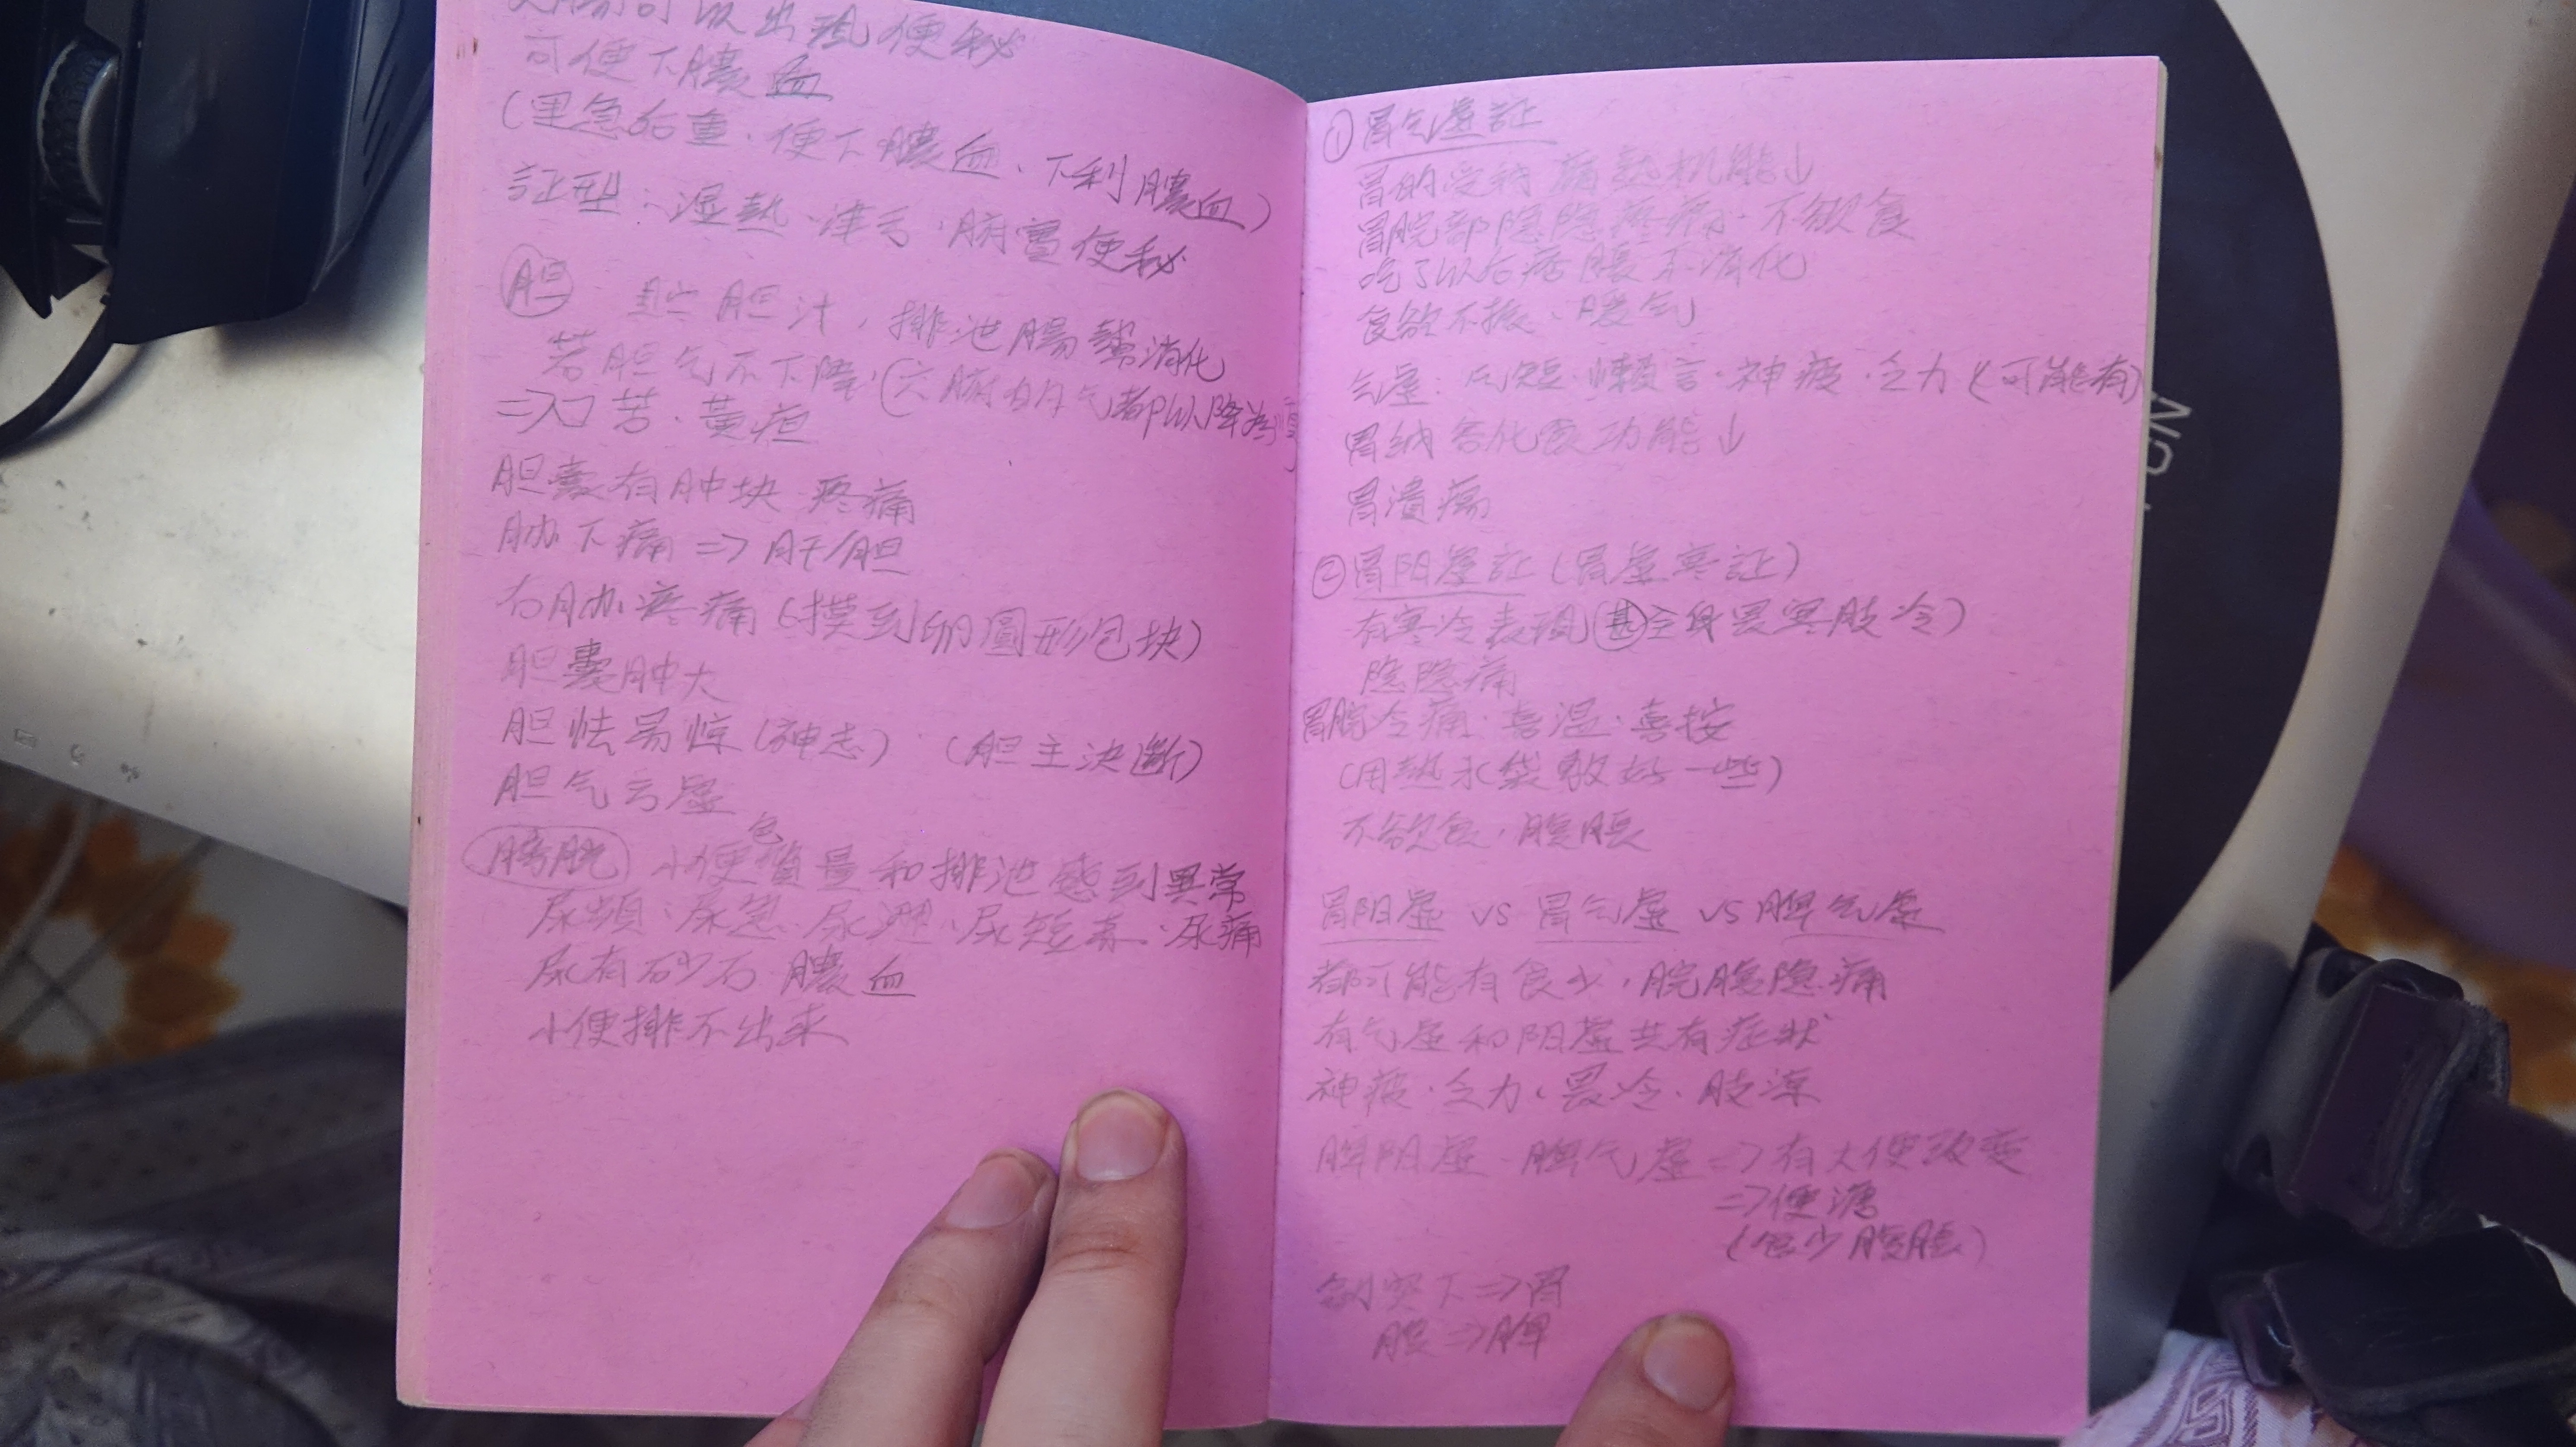 大腸可以出現便秘
可便下膿血
(里急后重、便下膿血、下利膿血)
証型：湿熱、津亏、腑實便秘
胆 贮胆汁，排泄腸幫消化
若胆气不下降，(六腑的气都以降為順)
=>口苦、黃疸
胆囊有肿块 疼痛
胁下痛 => 肝/胆
右胁疼痛(摸到卵圓形包块)
胆囊肿大
胆怯易惊(神志) (胆主決斷)
胆气亏虚
膀胱 小便色質量和排泄感到異常
尿頻、尿急、尿澀、尿短赤、尿痛
尿有砂石、膿血
小便排不出来
①胃气虚証
胃的受納腐熟机能↓
胃脘部隐隐疼痛、不欲食
吃了以后痞脹不消化
食欲不振、嗳气
气虚：气短、懒言、神疲、乏力 (可能有)
胃纳谷化食功能↓
胃潰瘍
②胃阳虚証(胃虚寒証)
有寒冷表現(甚全身畏寒肢冷)
隐隐痛
胃脘冷痛、喜温、喜按
(用热水袋敷好一些)
不欲食，腹脹
胃阳虚 vs 胃气虚 vs 脾气虚
都可能有食少，脘腹隐痛
有气虚和阳虚共有症状
神疲、乏力、畏冷、肢凉
脾阳虚、脾气虚 => 有大便改变
=> 便溏
(食少腹脹)
剑突下 => 胃
腹 => 脾
NO.